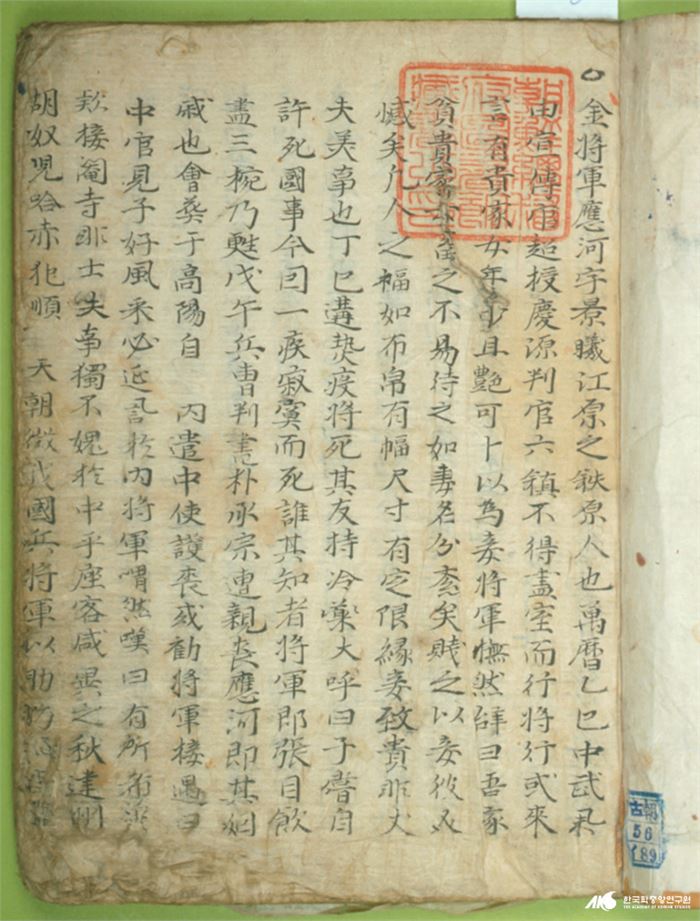 金將軍應河字景曦江原之鉄原人也萬曆乙巳中武科
由宣傳官超授慶源判官六鎮不得盡室而行將行或來
言有貴家女年少且艶可卜以為妾將軍憮然辞曰吾家
貧貴畜之不易待之如妻名分紊矣賤之以妾彼又
憾矣凡人之福如布帛有幅尺寸有定限緣妾致貴非丈
夫美事也丁巳遘热疫將死其友持冷藥大呼曰子嘗自
許死國事今因一疾寂寞而死誰其知者將軍即張目飲
盡三椀乃甦戊午兵曹判書朴承宗遭親喪應河即其姻
戚也會葬于高陽自 內遣中使護喪或勸將軍接遇曰
中官見子好風采必延譽於內將軍喟然嘆曰有所希冀
欵接閹寺非士夫事獨不媿於中乎座客咸異之秋建州
胡奴兒哈赤犯順 天朝徵我國兵將軍以助防
古朝
56
189
AKS 한국학중앙연구원
THE ACADEMY OF KOREAN STUDIES